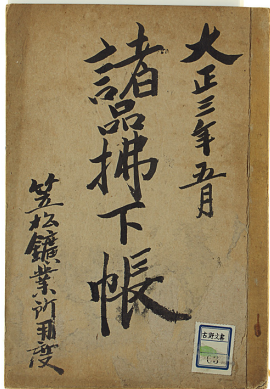 大正三年五月
諸品拂下帳
笠松鑛業所用度